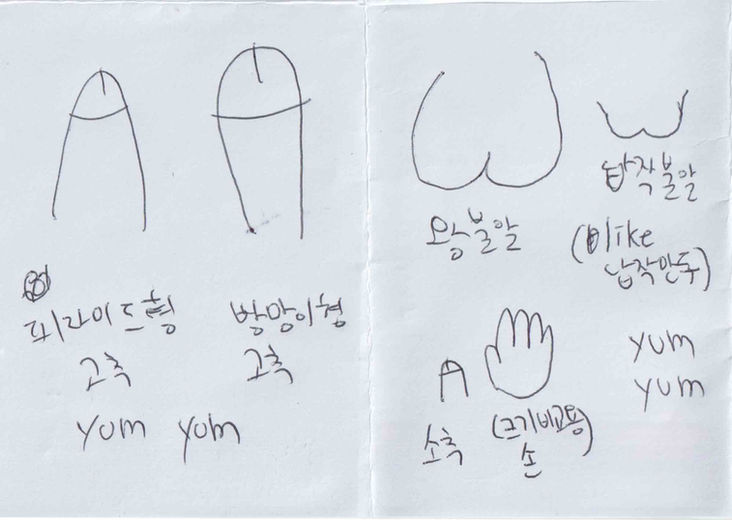 피라이드형
고추
방망이형
고추
yum yum
왕불알
납작불알
(like
납작만두)
소추
(크기비교용)
손
yum
yum